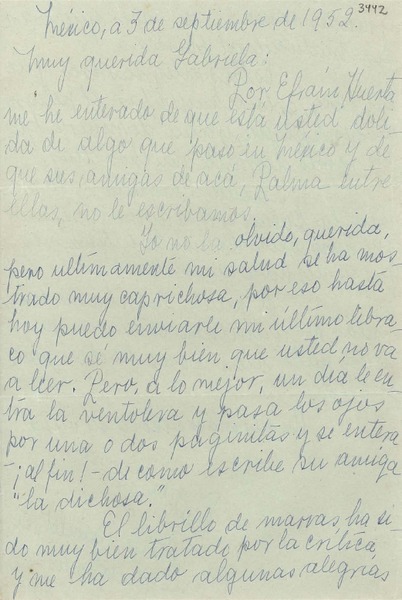 3442
México, a 3 de septiembre de 1952.
Muy querida Gabriela:
Por Efraín Huerta
me he enterado de que está usted doli
da de algo que pasó en México y de
que sus amigas de acá, Palma entre
ellas, no le escribamos.
Yo no la olvido, querida,
pero últimamente mi salud se ha mos
trado muy caprichosa, por eso hasta
hoy puedo enviarle mi último libra
co que sé muy bien que usted no va
a leer. Pero, a lo mejor, un día le en
tra la ventolera y pasa los ojos
por una o dos paginitas y se entera
-¡al fin!- de como escribe su amiga
"la dichosa."
El librillo de marras ha si
do muy bien tratado por la crítica,
y me ha dado algunas alegrías